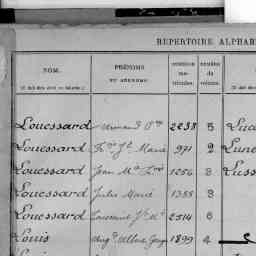 REPERTOIRE ALPHAB
NOM. PRÉNOMS ET SURNOMS. NUMÉROS MATRICULES. NUMÉRO DU VOLUME.
Louessard Armand 2238 5 Luc
Louessard Fçois Jh Marie 971 2 Lun
Louessard Jean Ma 1256 3 Luss
Louessard Jules Marie 1388 3
Louessard Laurent Jh Ma 2514 6
Louis Aug. Albert Georges 1899 4